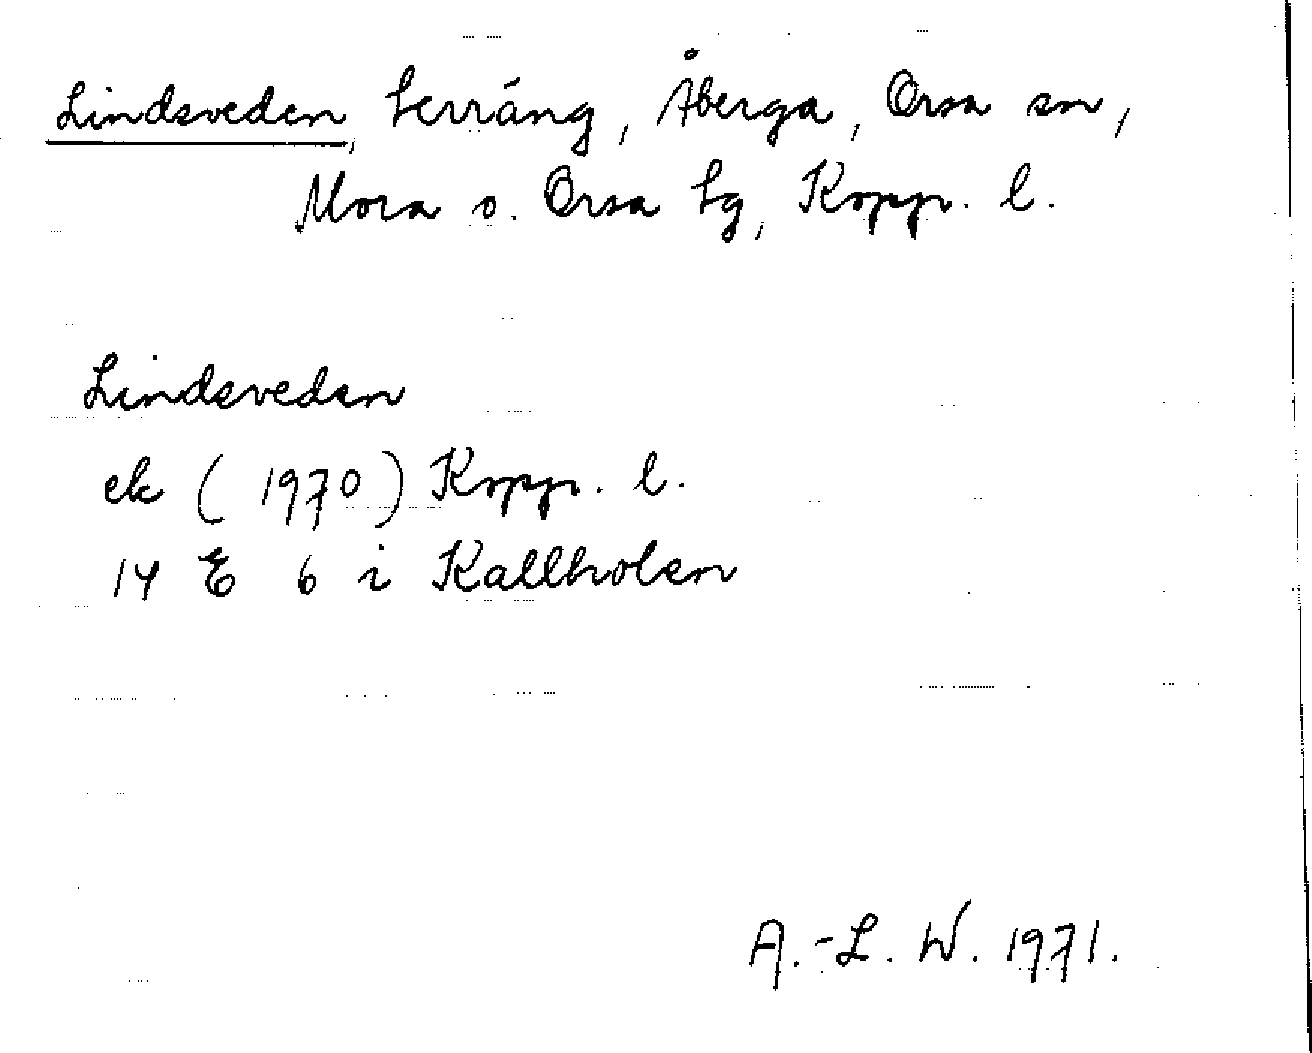 Lindsveden, terräng, Åberga, Orsa sn,
Mora o. Orsa tg, Kopp. l.
Lindsveden
ek (1970) Kopp. l.
14 E 6 i Kallholen
A.-L. W. 1971.